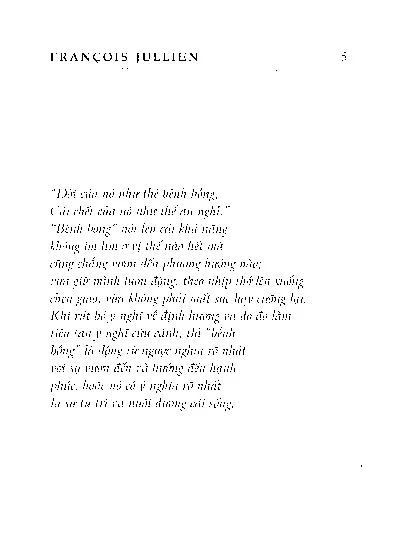 FRANÇOIS JULLIEN 5
“Đời của nó như thể bềnh bồng,
Cái chết của nó như thể an nghỉ.”
“Bềnh bồng” nói lên cái khả năng
không im lìm ở vị thế nào hết mà
cũng chẳng vươn đến phương hướng nào;
vừa giữ mình luôn động, theo nhịp thở lên xuống
chuyển giao, vừa không phải mất sức hay cưỡng lại.
Khi rút bỏ ý nghĩ về định hướng và do đó làm
tiêu tan ý nghĩ cứu cánh, thì “bềnh
bồng” là động từ ngược nghĩa rõ nhất
với sự vươn đến và hướng đến hạnh
phúc, hoặc nó có ý nghĩa rõ nhất
là sự tu trì và nuôi dưỡng cái sống.